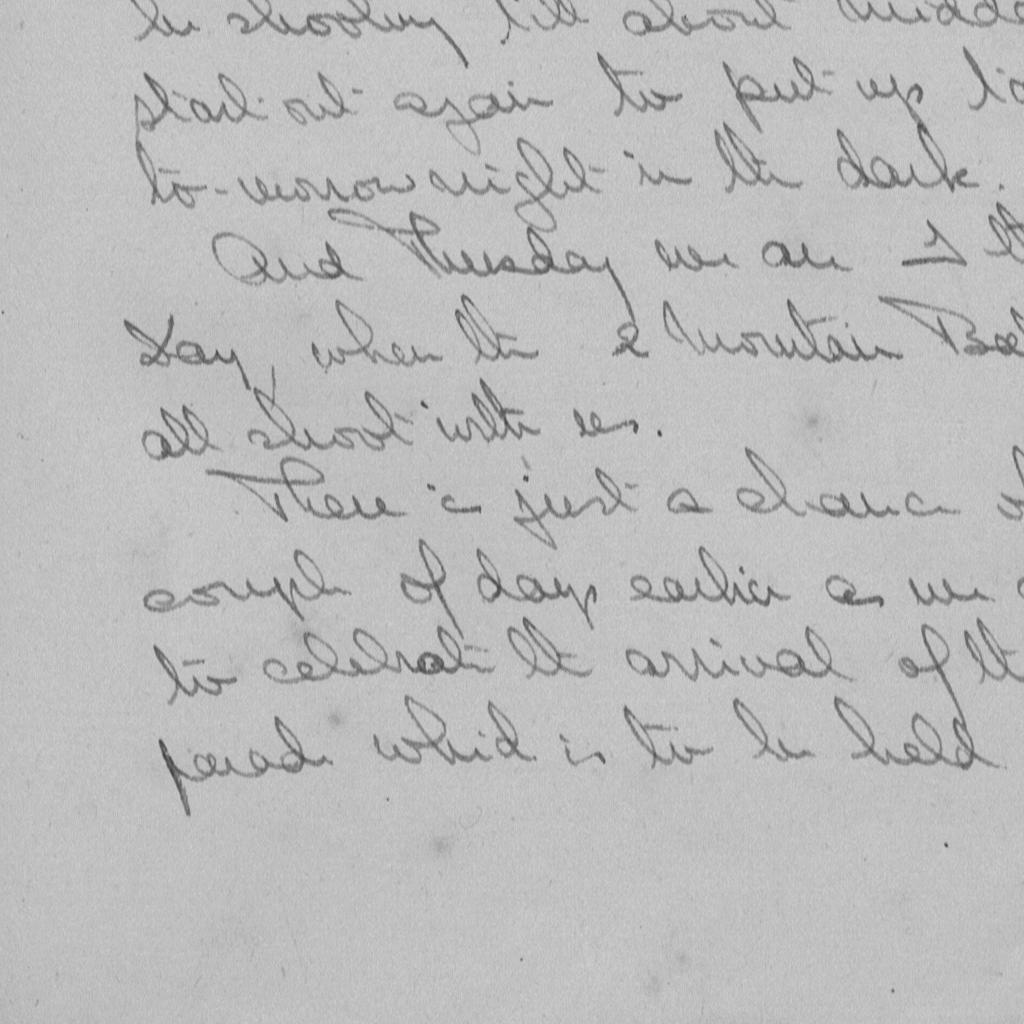 be shooting till about midda
start out again to put up
to-morrow night in the dark.
And Tuesday we are I
Day, when the 2 Mountain Bat
all shoot with us.
There is just a chance of
couple of days earlier as we
to celebrate the arrival of th
parade which is to be held